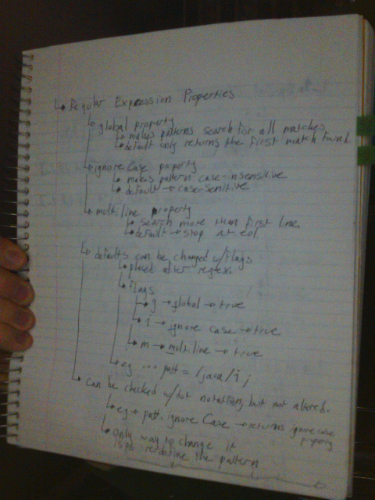 ↳ Regular Expression Properties
↳ global property
↳ makes patterns search for all matches
↳ default only returns the first match found
↳ ignoreCase property
↳ makes pattern case-insensitive
↳ default → case-sensitive
↳ multiline property
↳ search more than first line
↳ default → stop at eol.
↳ defaults can be changed w/flags
↳ placed after regex
↳ flags
↳ g → global → true
↳ i → ignore case → true
↳ m → multiline → true
↳ eg ... patt = /java/i;
↳ can be checked w/dot notation, but not altered.
↳ eg → patt.ignoreCase → returns ignore case
property
↳ only way to change it
is to redefine the pattern